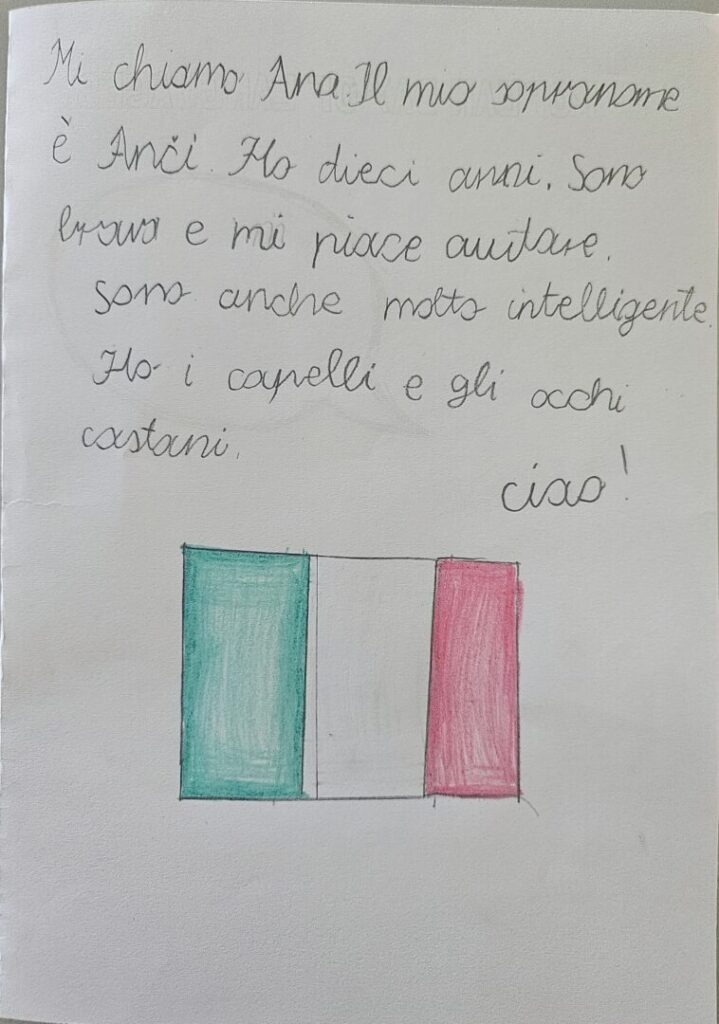 Mi chiamo Ana. Il mio sopranome
è Anči. Ho dieci anni. Sono
brava e mi piace auitare.
Sono anche molto intelligente.
Ho i capelli e gli occhi
castani.
ciao!